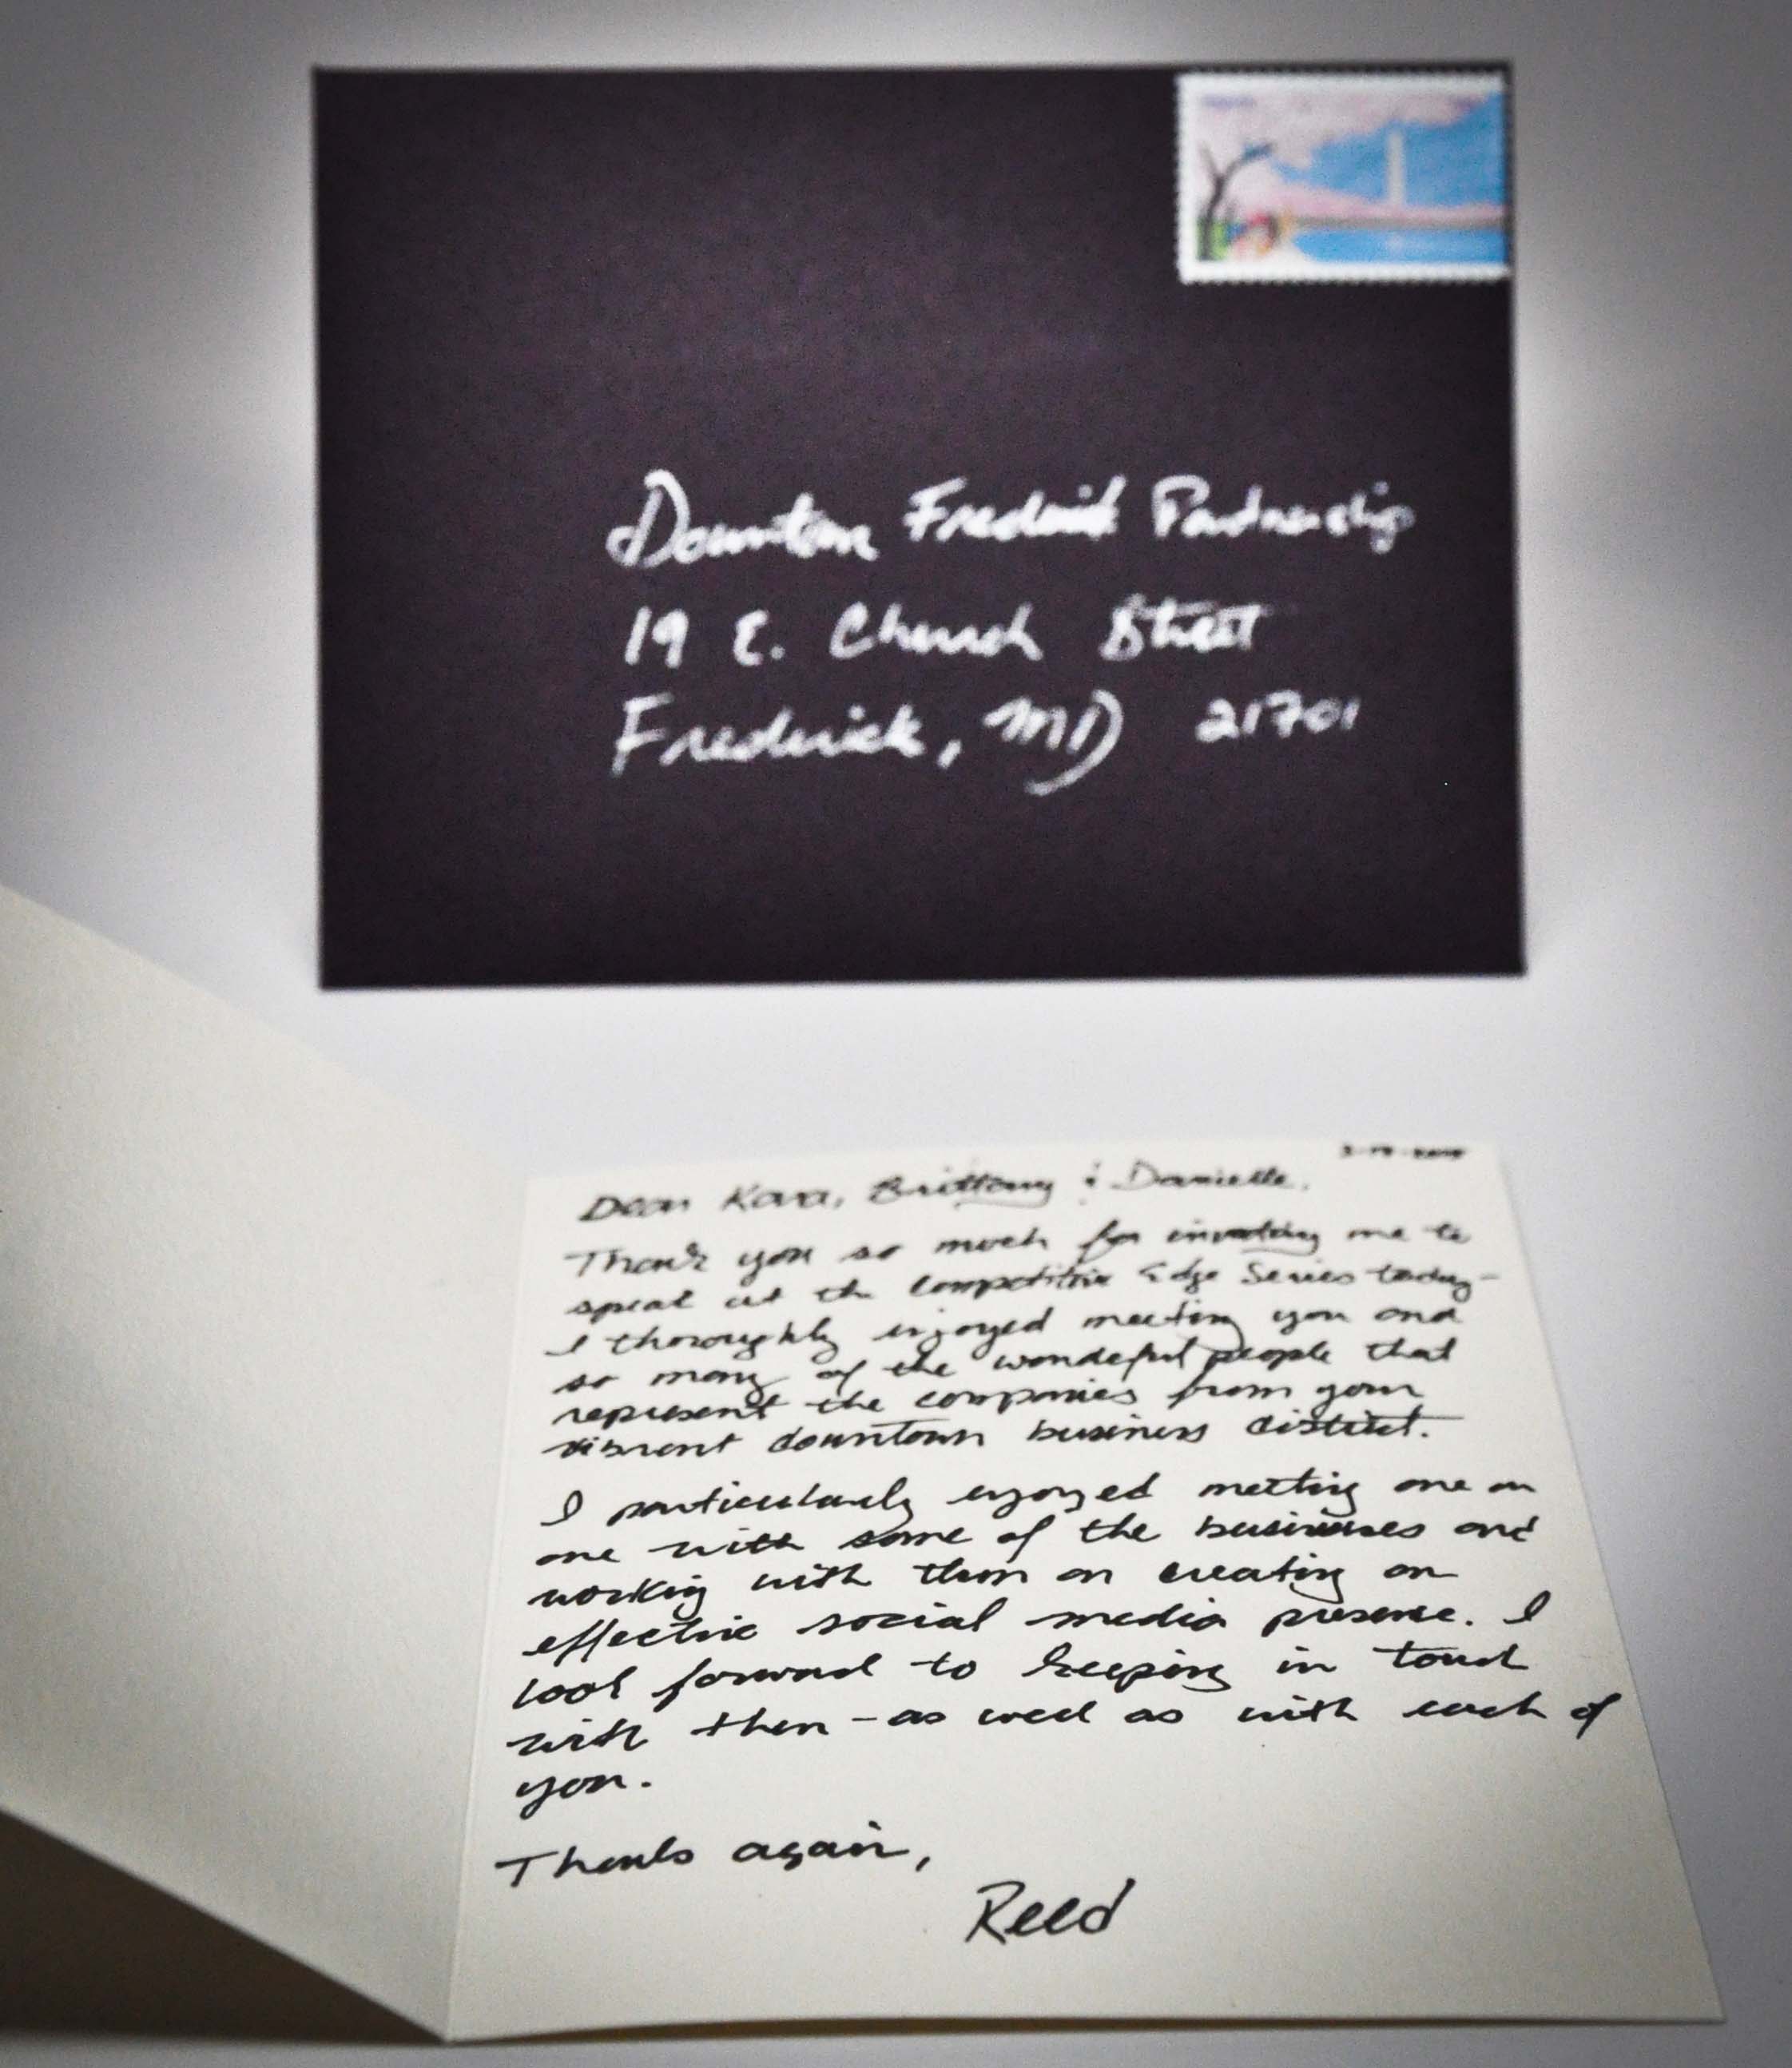 Downtown Frederick Partnership
19 E. Church Street
Frederick, MD 21701
Dear Kara, Brittany & Danielle,
Thank you so much for inviting me to
speak at the Competitive Edge Series today-
I thoroughly enjoyed meeting you and
so many of the wonderful people that
represent the companies from your
vibrant downtown business district.
I particularly enjoyed meeting one on
one with some of the businesses and
working with them on creating an
effective social media presence. I
look forward to keeping in touch
with them - as well as with each of
you.
Thanks again,
Reed